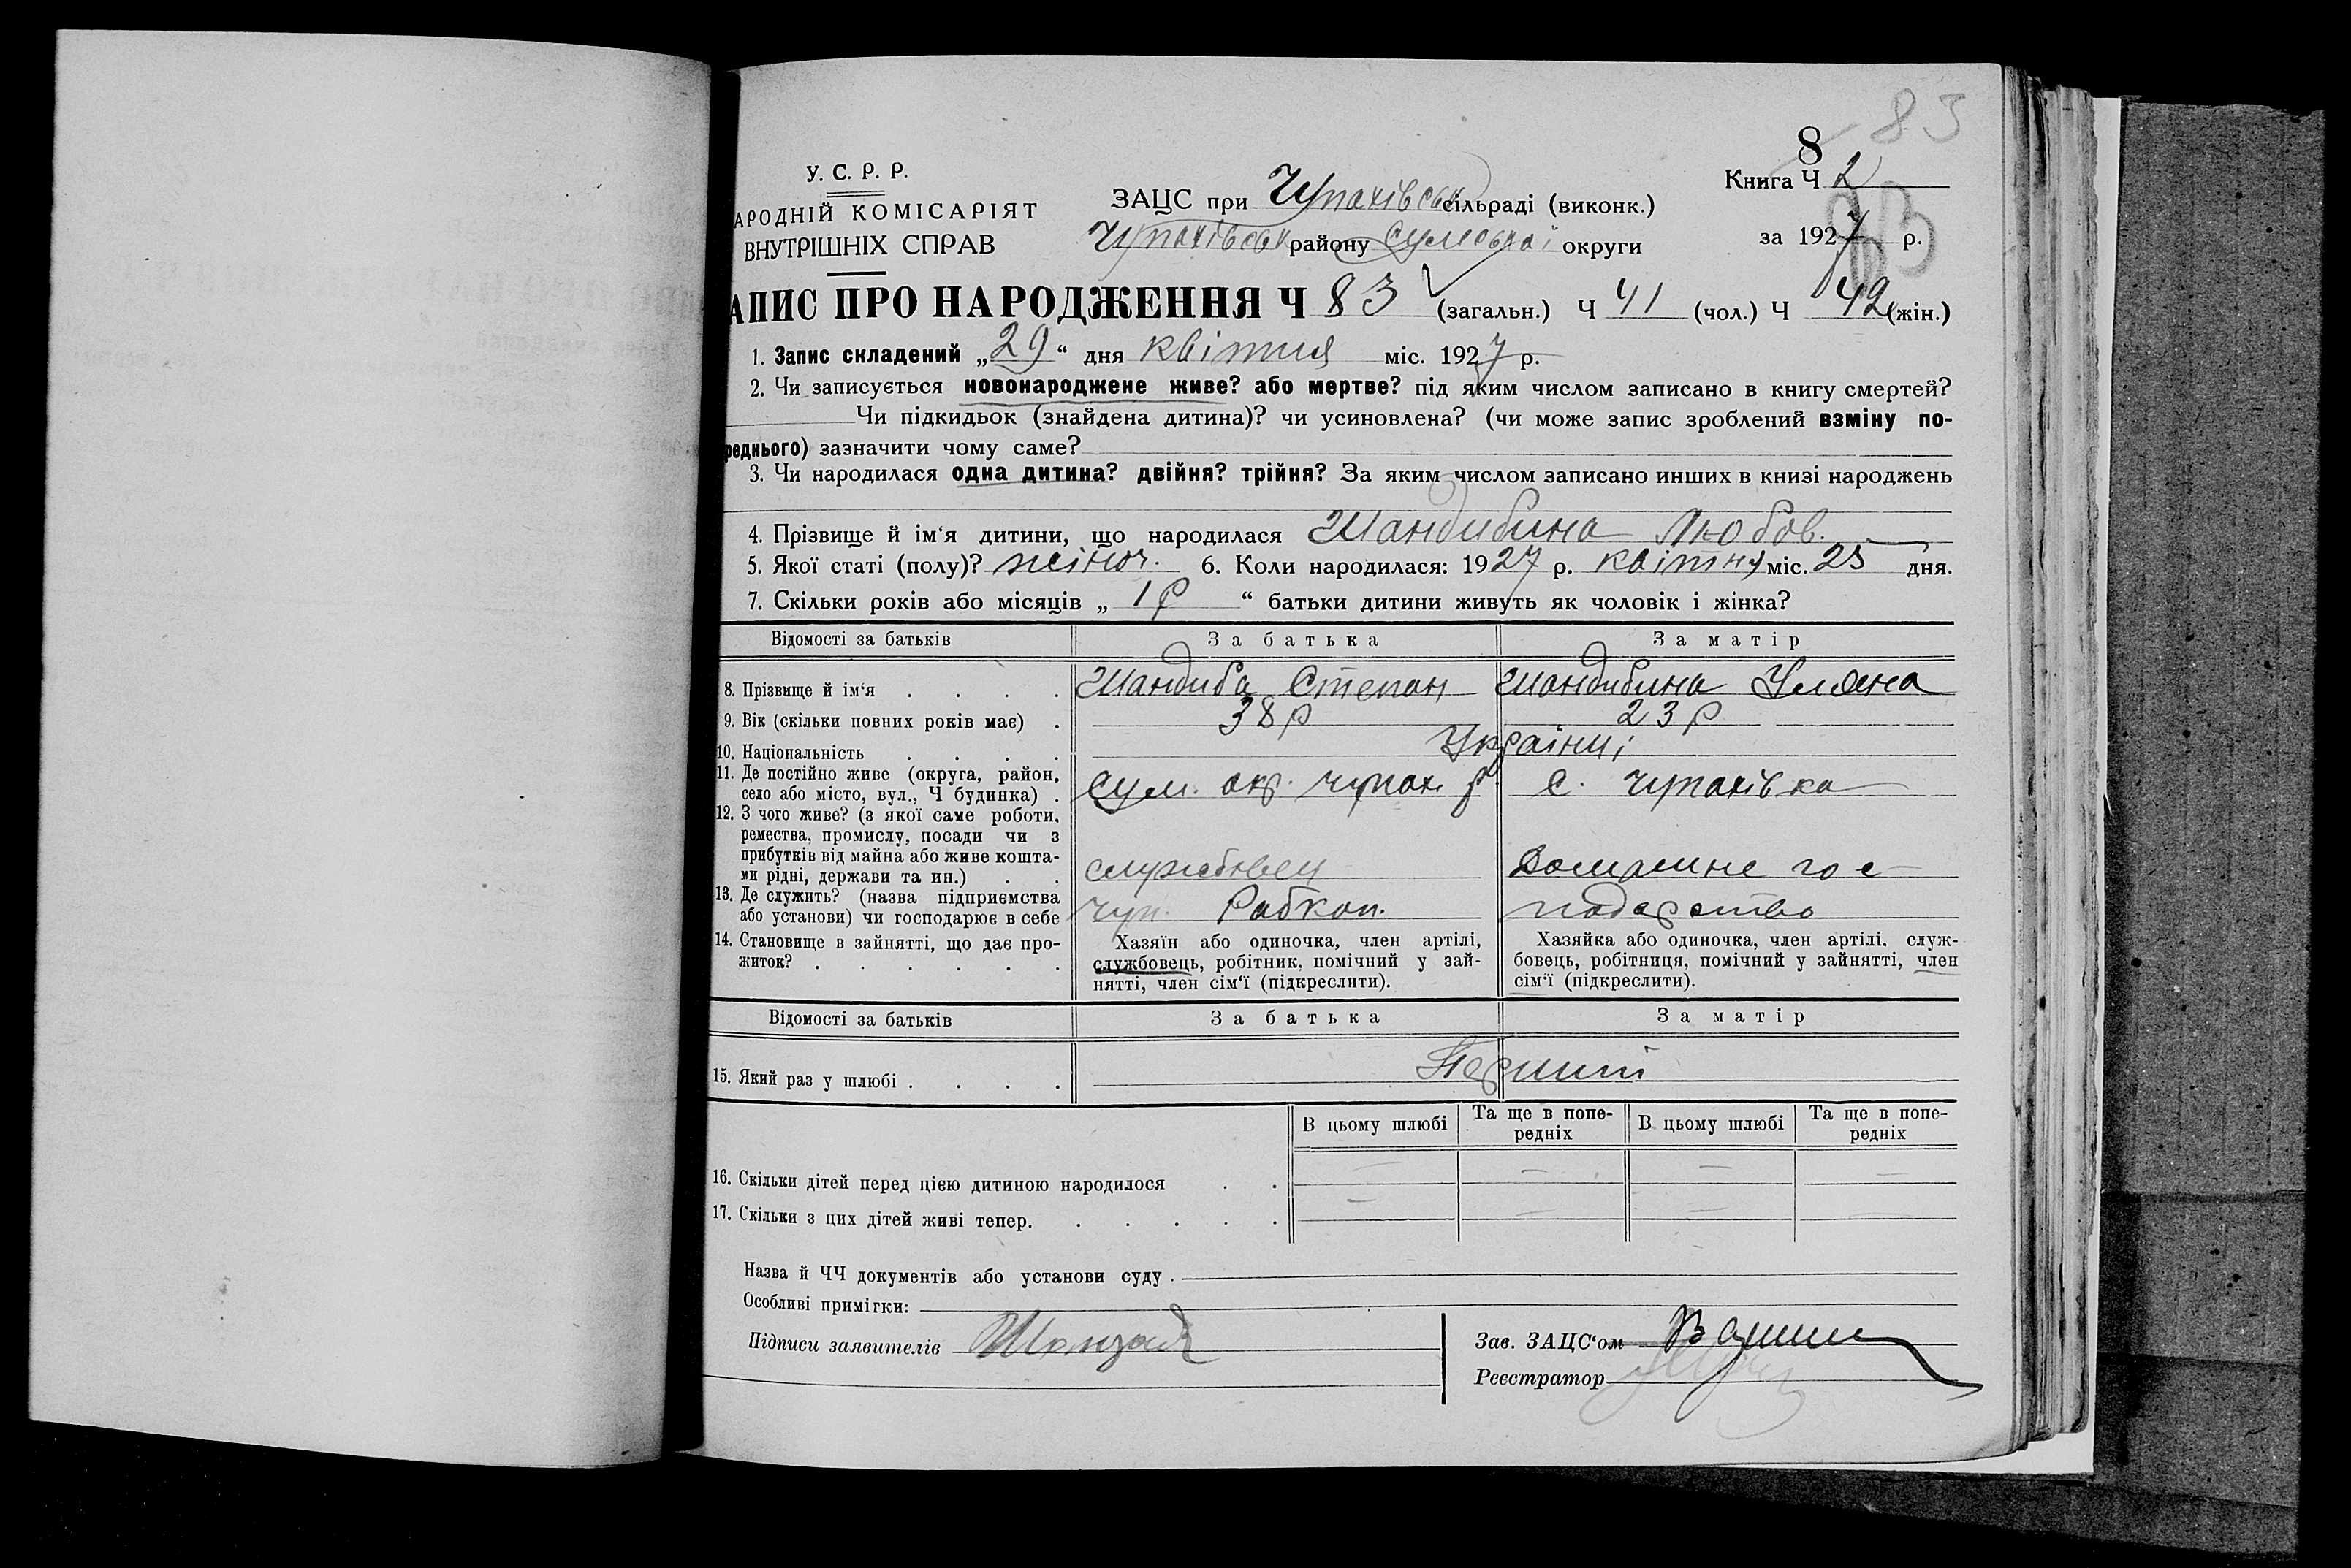 83
8
У. С. Р. Р.
Книга Ч 2
АРОДНІЙ КОМІСАРІЯТ
ВНУТРІШНІХ СПРАВ
ЗАЦС при Чупахівськ сільраді (виконк.)
Чупахівськ району Сумської округи
за 1927 р.
83
АПИС ПРО НАРОДЖЕННЯ Ч 83 (загальн.) Ч 41 (чол.) Ч 42 (жін.)
1. Запис складений „29“ дня квітня міс. 1927 р.
2. Чи записується новонароджене живе? або мертве? під яким числом записано в книгу смертей?
Чи підкидьок (знайдена дитина)? чи усиновлена? (чи може запис зроблений взміну по-
реднього) зазначити чому саме?
3. Чи народилася одна дитина? двійня? трійня? За яким числом записано инших в книзі народжень
4. Прізвище й ім‘я дитини, що народилася Шандибина Любов.
5. Якої статі (полу)? жіноч. 6. Коли народилася: 1927 р. квітня міс. 25 дня.
7. Скільки років або місяців „ 1 р “ батьки дитини живуть як чоловік і жінка?
Відомості за батьків За батька За матір
8. Прізвище й ім‘я . . . . Шандиба Степан Шандибина Уляна
9. Вік (скільки повних років має) . 38 р 23 р
10. Національність . . . . Українці
11. Де постійно живе (округа, район,
село або місто, вул., Ч будинка) . Сум. окр. чупах. р с. Чупахівка
12. З чого живе? (з якої саме роботи,
ремества, промислу, посади чи з
прибутків від майна або живе кошта-
ми рідні, держави та ин.) . . службовец Домашне гос-
13. Де служить? (назва підприємства
або установи) чи господарює в себе чуп. Рабкоп. подарство
14. Становище в зайнятті, що дає про-
житок? . . . . . .
Хазяїн або одиночка, член артілі,
службовець, робітник, помічний у зай-
нятті, член сім‘ї (підкреслити).
Хазяйка або одиночка, член артілі, служ-
бовець, робітниця, помічний у зайнятті, член
сім‘ї (підкреслити).
Відомості за батьків За батька За матір
15. Який раз у шлюбі . . . . Перший
В цьому шлюбі Та ще в попе-
редніх В цьому шлюбі Та ще в попе-
редніх
16. Скільки дітей перед цією дитиною народилося . . — — — —
17. Скільки з цих дітей живі тепер. . . . . . — — — —
Назва й ЧЧ документів або установи суду .
Особливі примітки:
Підписи заявителів
Зав. ЗАЦС‘ом
Реєстратор